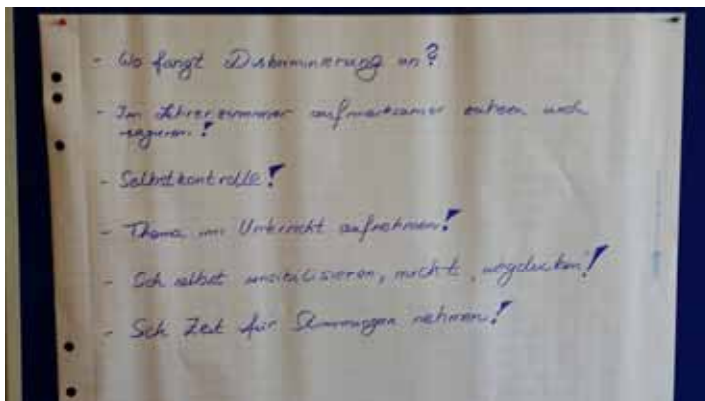 - Wo fängt Diskriminierung an?
- Im Lehrerzimmer aufmerksamer sein und
reagieren!
- Selbstkontrolle!
- Thema im Unterricht aufnehmen!
- Sich selbst sensibilisieren, nicht "wegducken"!
- Sich Zeit für Stimmungen nehmen!